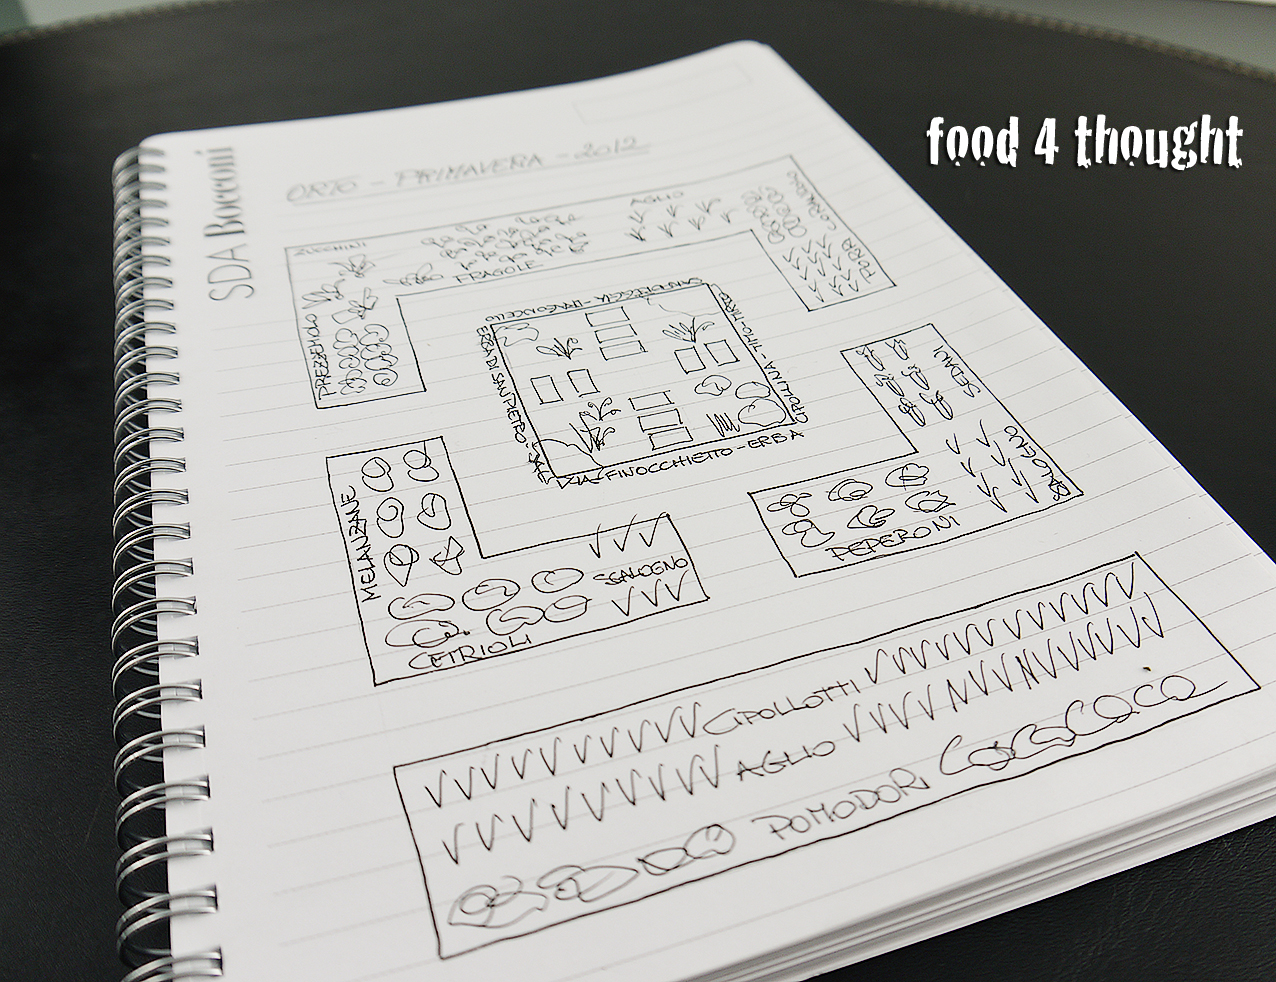 food 4 thought
SDA Bocconi
ORTO - PRIMAVERA - 2012
ZUCCHINI
FRAGOLE
AGLIO
PORRI
PREZZEMOLO
SANTOREGGIA - DRAGONCELLO
ERBA DI SAN PIETRO -
CIPOLLINA - TIMO - MIRTO
FINOCCHIETTO - ERBA
SEDANI
SCALOGNO
PEPERONI
MELANZANE
SCALOGNO
CETRIOLI
CIPOLLOTTI
AGLIO
POMODORI